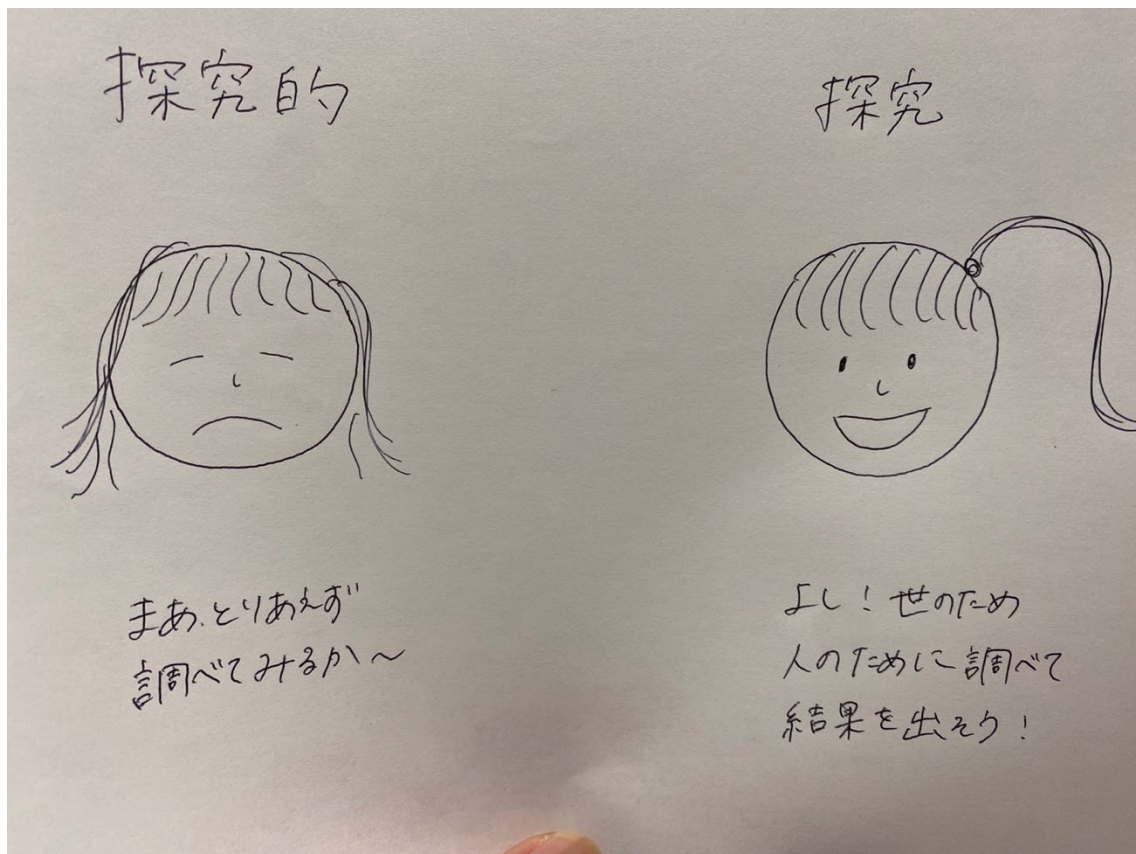 探究的
まあ、とりあえず
調べてみるか～
探究
よし！世のため
人のために調べて
結果を出そう！